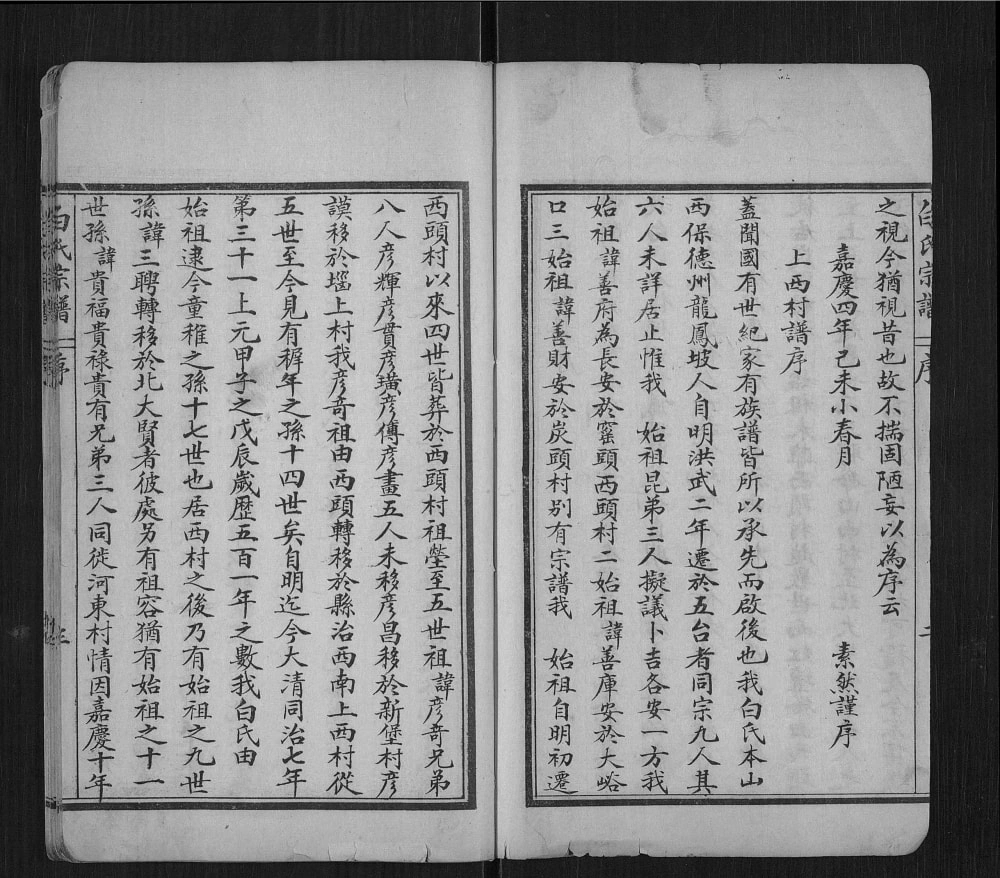 之視今猶視昔也故不揣固陋妄以為序云
嘉慶四年己未小春月 素然謹序
上西村譜序
蓋聞國有世紀家有族譜皆所以承先而啟後也我白氏本山
西保德州龍鳳坡人自明洪武二年遷於五台者同宗九人其
六人未詳居止惟我 始祖昆弟三人擬議卜吉各安一方我
始祖諱善府為長安於窰頭西頭村二始祖諱善庫安於大峪
口三始祖諱善財安於炭頭村別有宗譜我 始祖自明初遷
白氏宗譜 序 二
西頭村以來四世皆葬於西頭村祖塋至五世祖諱彥奇兄弟
八人彥輝彥貫彥璜彥傅彥畫五人未移彥昌移於新堡村彥
謨移於堖上村我彥奇祖由西頭轉移於縣治西南上西村從
五世至今見有穉年之孫十四世矣自明迄今大清同治七年
第三十一上元甲子之戊辰歲歷五百一年之數我白氏由
始祖逮今童稚之孫十七世也居西村之後乃有始祖之九世
孫諱三聘轉移於北大賢者彼處另有祖容猶有始祖之十一
世孫諱貴福貴祿貴有兄弟三人同徙河東村情因嘉慶十年
白氏宗譜 序 三